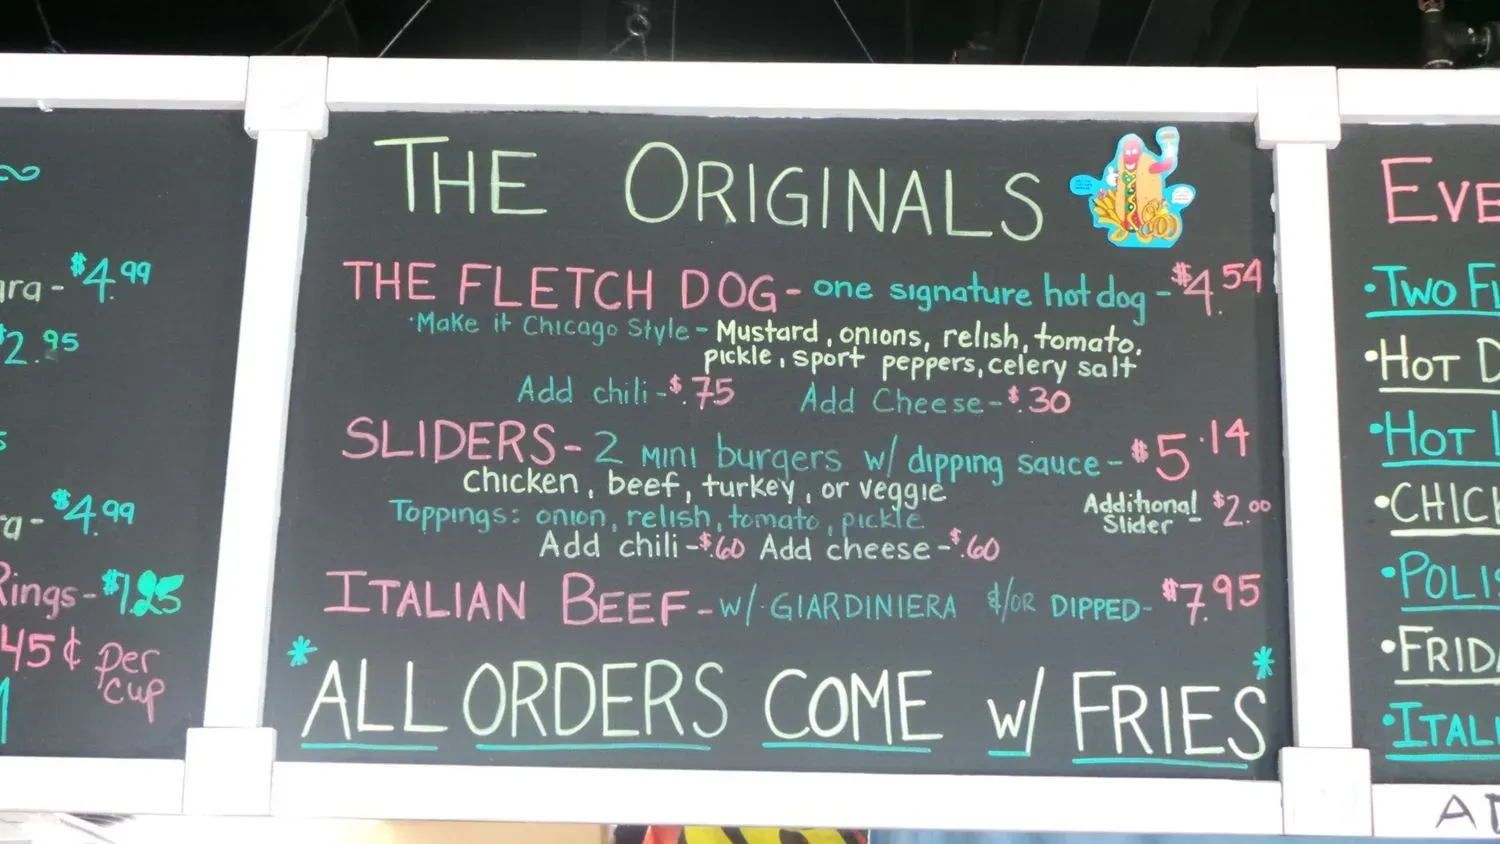 ara - $4.99
$2.95
- $4.99
Rings - $1.25
45¢ per
cup
THE ORIGINALS
THE FLETCH DOG - one signature hot dog - $4.54
·Make it Chicago Style - Mustard, onions, relish, tomato,
pickle, sport peppers, celery salt
Add chili - $.75 Add Cheese - $.30
SLIDERS - 2 MINI burgers w/ dipping sauce - $5.14
chicken, beef, turkey, or veggie
Additional $2.00
Slider -
Toppings: onion, relish, tomato, pickle
Add chili - $.60 Add cheese - $.60
ITALIAN BEEF - w/ GIARDINIERA &/OR DIPPED - $7.95
*ALL ORDERS COME w/ FRIES*
EVE
·TWO F
·HOT D
·HOT
·CHIC
·POLIS
·FRID
·ITAL